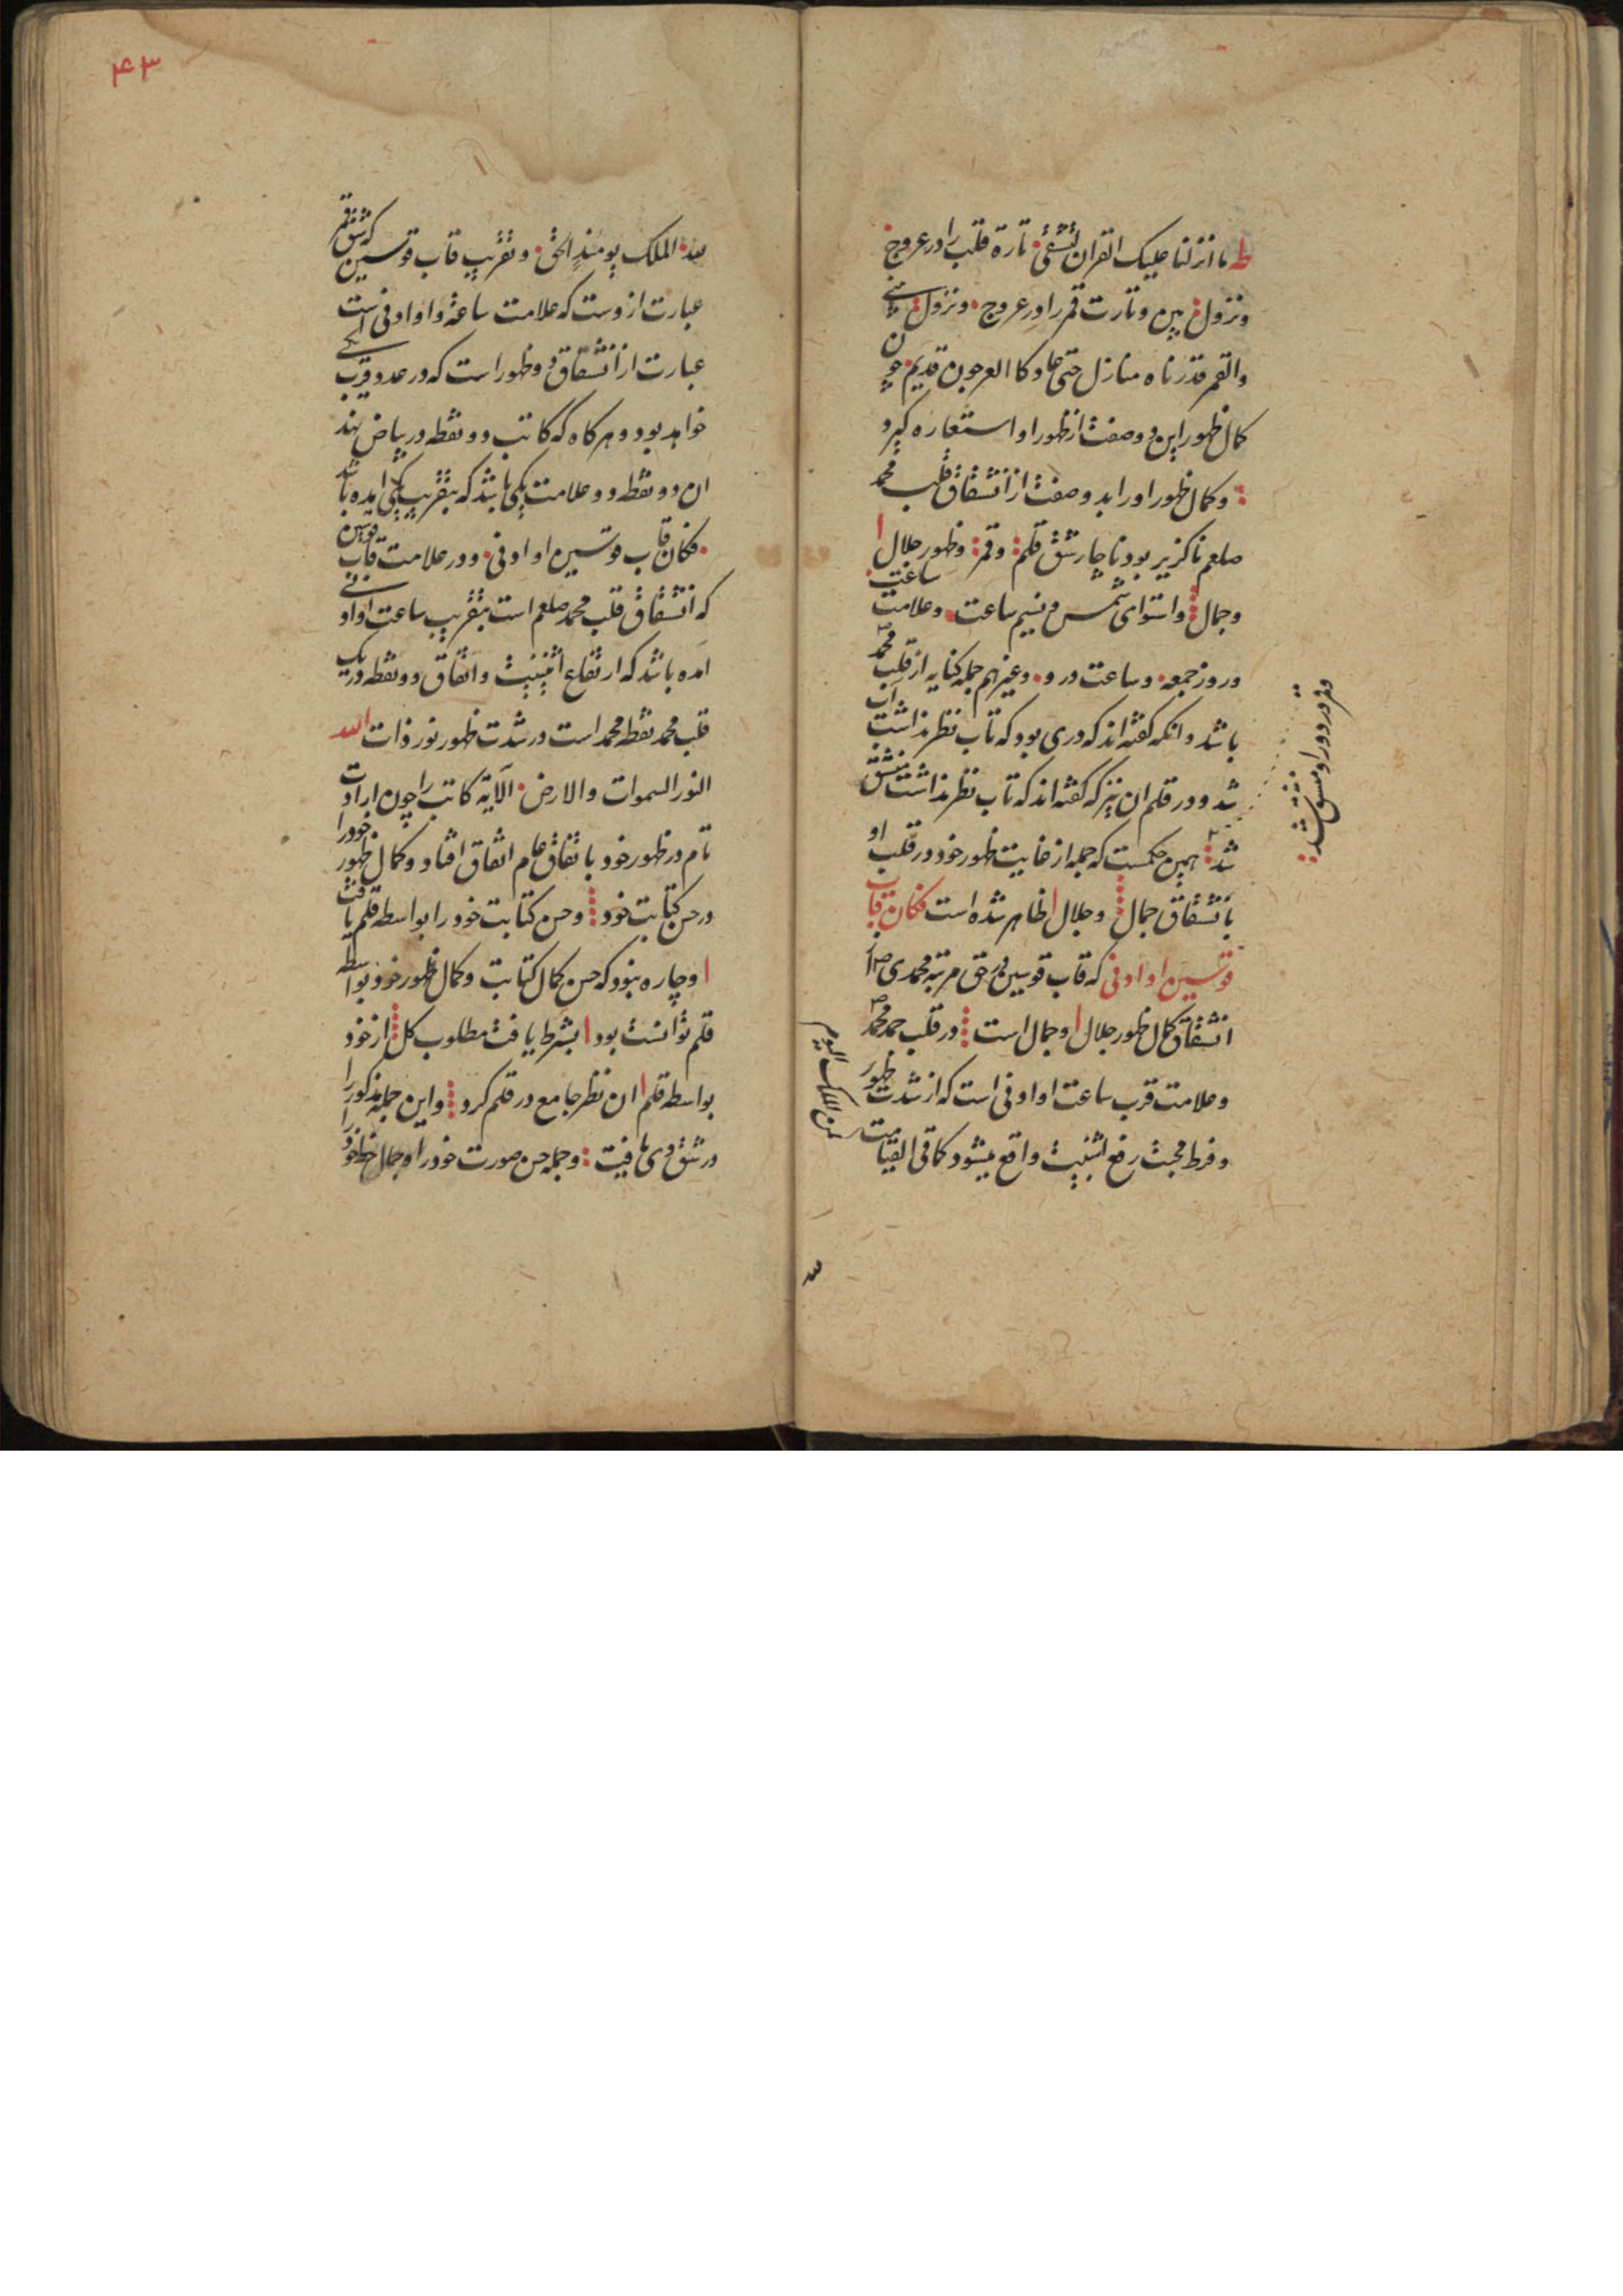 طه ما انزلنا علیک القران لتشقی تارة قلب را در عروج
و نزول بین و تارت قمر را در عروج و نزول
والقمر قدرناه منازل حتی عاد کا العرجون قدیم چون
کمال ظهور این دو صفت از ظهور او استعاره کیرد
و کمال ظهور او را بد و صفت از انشقاق قلب محمد
صلعم ناکزیر بود ناچار شق قلم و قمر و ظهور جلال
و جمال و استوای شمس در نیم ساعت و علامت ساعت
و روز جمعه و ساعت در و و غیر هم جمله کنایه از قلب محمد
باشد و انکه کفته اند که دری بود که تاب نظر نداشت آب
شد و در قلم ان نیز که کفته اند که تاب نظر نداشت منشق
شد همین حکمست که جمله از غایت ظهور خود در قلب او
بانشقاق جمال و جلال ظاهر شده است فکان قاب
قوسین او ادنی که قاب قوسین در حق مرتبه محمدی
انشقاق کمال ظهور جلال و جمال است در قلب محمد
و علامت قرب ساعت او ادنی است که از شدت ظهور
و فرط محبت رفع اثنینیت واقع میشود کما فی القیامت
لمن الملک الیوم
لله
و قمر در دور او منشق شد
۴۳
لله الملک یومئذ الحق و تقریب قاب قوسین که شق قمر
عبارت ازوست که علامت ساعة و او ادنی است
عبارت از انشقاق و ظهور است که در عدد قرب
خواهد بود و هر کاه که کاتب دو نقطه در بیاض نهد
ان دو نقطه دو علامت یکی باشد که بتقریب یکی امده باشد
فکان قاب قوسین او ادنی و در علامت قاب قوسین
که انشقاق قلب محمد صلعم است بتقریب ساعت او ادنی
امده باشد که ارتفاع اثنینیت و اتفاق دو نقطه در یک
قلب محمد نقطه محمد است در شدت ظهور نور ذات الله
النور السموات والارض الآیة کاتب را چون ارادت
تام در ظهور خود باتفاق عام اتفاق افتاد و کمال ظهور خود را
در حسن کتابت خود و حسن کتابت خود را بواسطه قلم یافت
و چاره نبود که حسن کمال کتابت و کمال ظهور خود بواسطه
قلم توانست بود بشرط یافت مطلوب کل از خود
بواسطه قلم ان نظر جامع در قلم کرد و این جمله مذکور را
در شق وی یافت و جمله حسن صورت خود را و جمال خط خود را